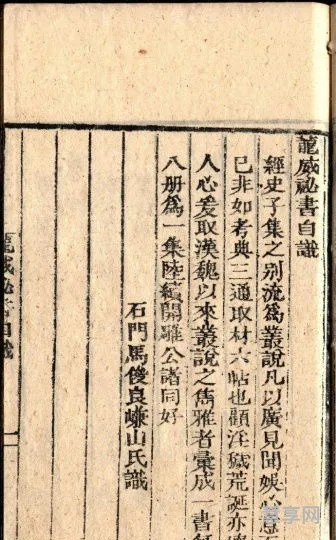 龍威祕書自識
經史子集之别流爲叢說凡以廣見聞娱心意
已非如考典三通取材六帖也顧汪穢荒誕亦
人心爰取漢魏以來叢說之雋雅者彙成一書
八册爲一集陸續開雕公諸同好
石門馬俊良嵰山氏識
龍威祕書自識
享网